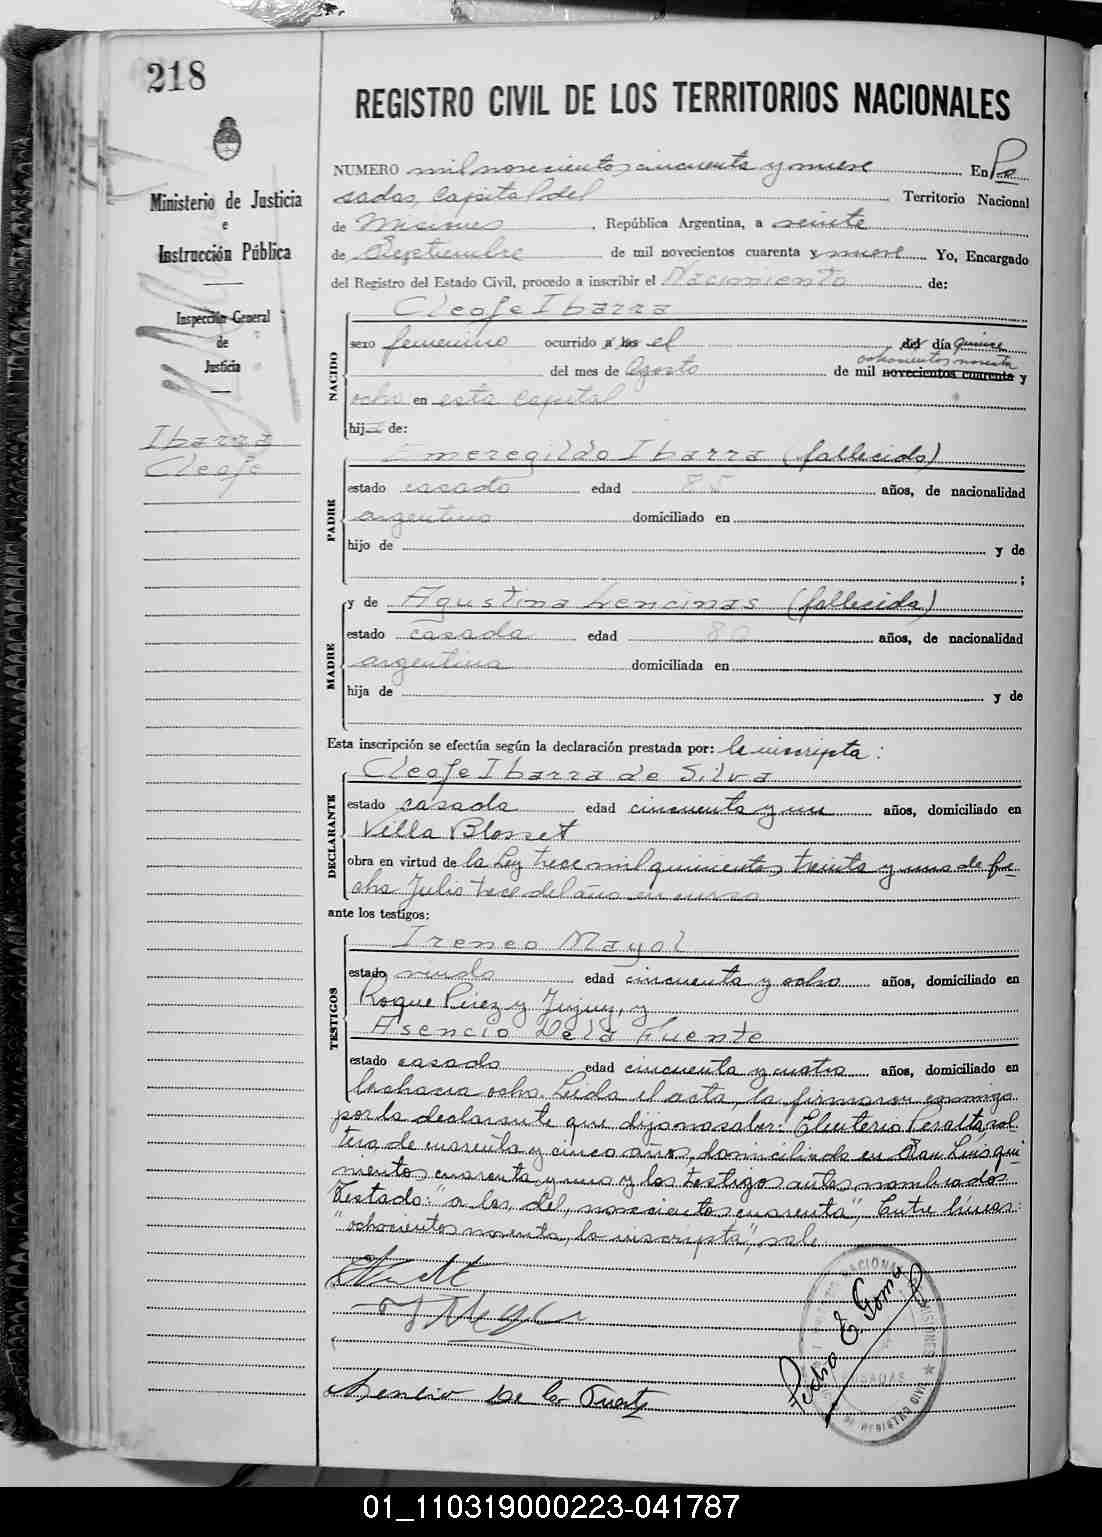 218
REGISTRO CIVIL DE LOS TERRITORIOS NACIONALES
Ministerio de Justicia
e
Instrucción Pública
Inspección General
de
Justicia
Ibarra
Cleofe
NUMERO mil novecientos cincuenta y nueve En Po
sadas, Capital del Territorio Nacional
de Misiones, República Argentina, a veinte
de Septiembre de mil novecientos cuarenta y nueve Yo, Encargado
del Registro del Estado Civil, procedo a inscribir el Nacimiento de:
NACIDO
Cleofe Ibarra
sexo femenino ocurrido a las el del día quince
ochocientos noventa
del mes de Agosto de mil novecientos cuarenta y
ocho en esta Capital
hija de:
PADRE
Emeregildo Ibarra (fallecido)
estado casado edad 85 años, de nacionalidad
argentino domiciliado en
hijo de y de
;
MADRE
y de Agustina Lencinas (fallecida)
estado casada edad 80 años, de nacionalidad
argentina domiciliada en
hija de y de
Esta inscripción se efectúa según la declaración prestada por: la inscripta:
DECLARANTE
Cleofe Ibarra de Silva
estado casada edad cincuenta y un años, domiciliado en
Villa Blosset
obra en virtud de la Ley trece mil quinientos treinta y uno de fe-
cha Julio trece del año en curso
ante los testigos:
TESTIGOS
Ireneo Mayol
estado viudo edad cincuenta y ocho años, domiciliado en
Roque Pérez y Jujuy, y
Asencio De la Fuente
estado casado edad cincuenta y cuatro años, domiciliado en
la chacra ocho. Leída el acta, la firmaron conmigo
por la declarante que dijo no saber: Eleuterio Peralta, sol-
tero, de cuarenta y cinco años, domiciliado en San Luis qui-
nientos cuarenta y uno y los testigos antes nombrados
Testado: "a las, del, novecientos cuarenta", Entre líneas:
"ochocientos noventa, la inscripta", vale
Asencio De la Fuente
Pedro E. Goma
MISIONES
POSADAS
01_110319000223-041787